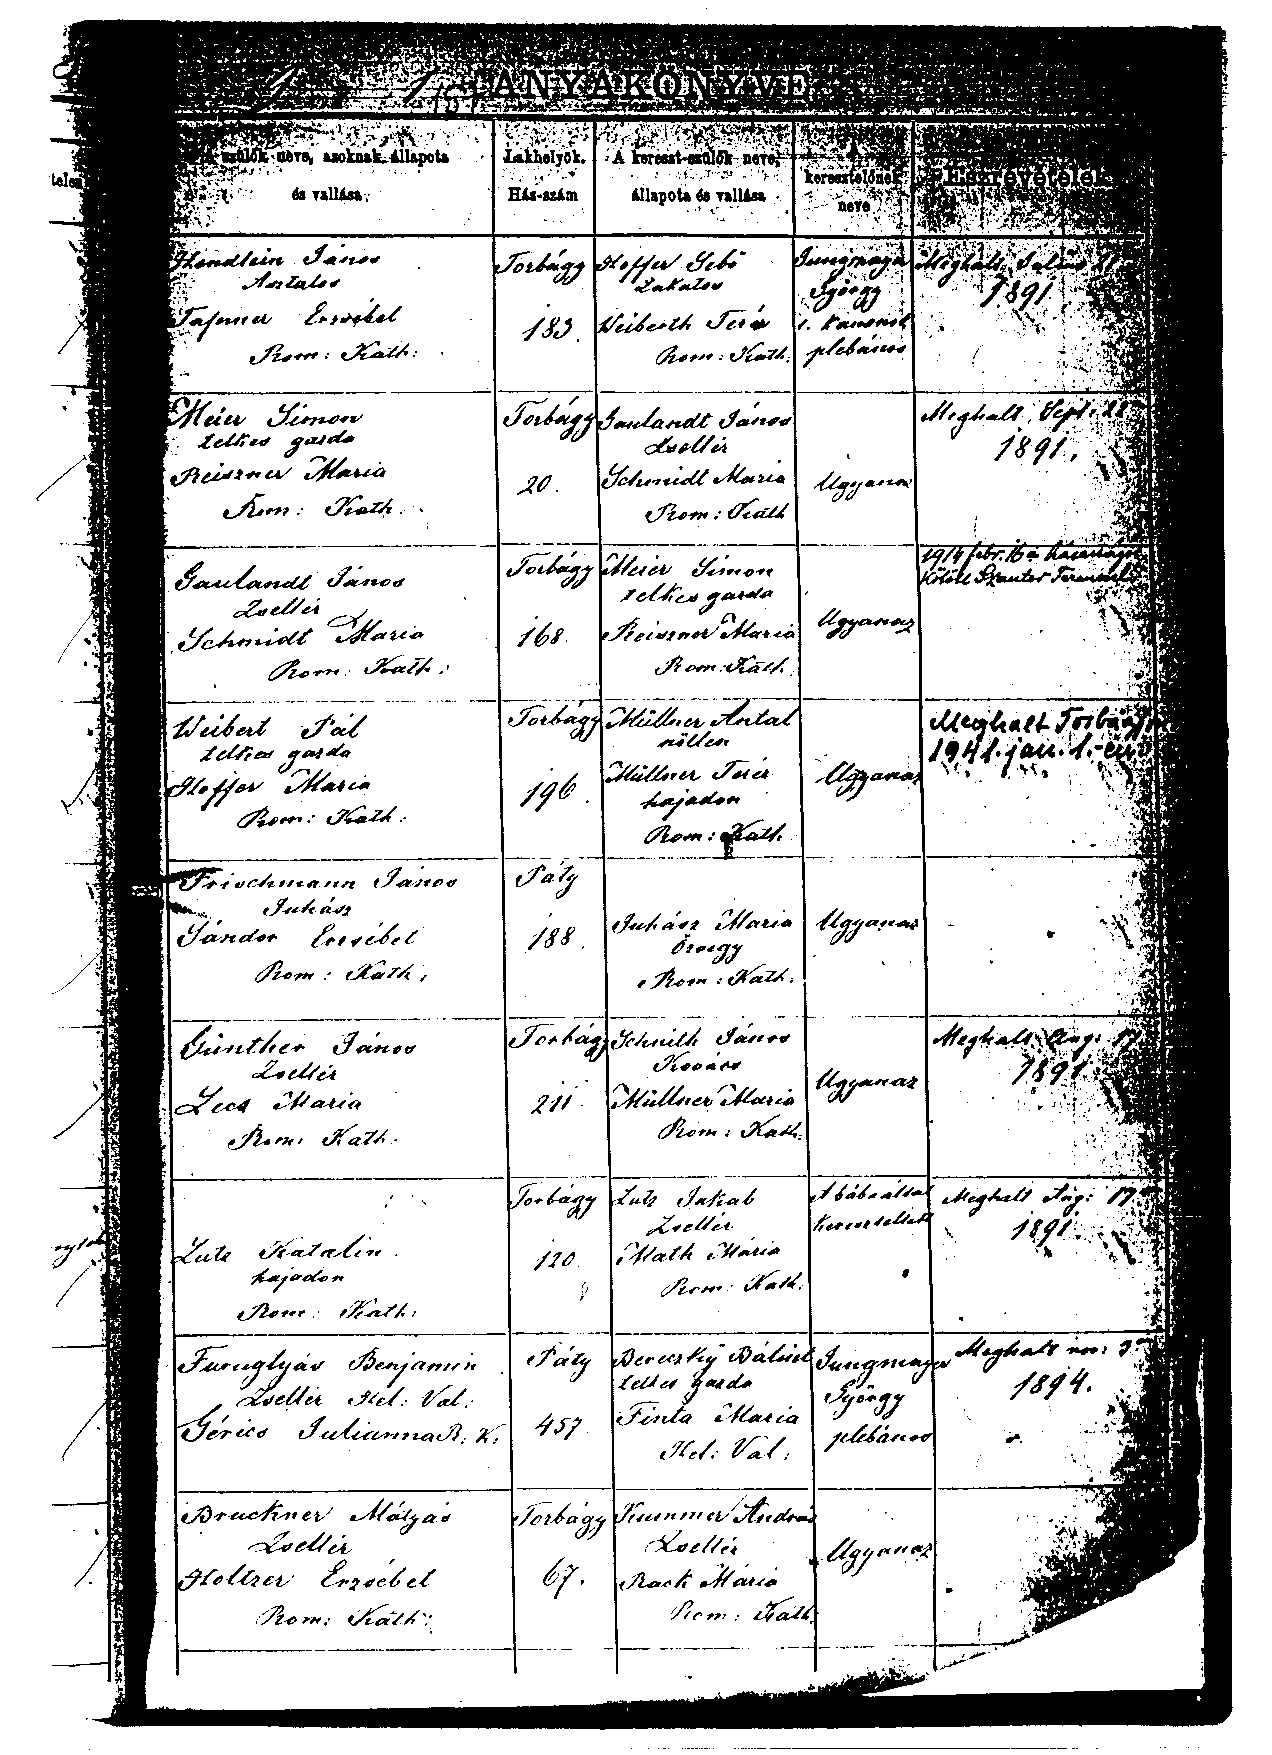 ANYAKÖNYVE
szülők neve, azoknak állapota
és vallása.
Lakhelyök.
Ház-szám
A kereszt-szülők neve,
állapota és vallása
keresztelőnek
neve
Észrevételek
Hendlein János
Asztalos
Taferner Erzsébet
Rom: Kath:
Torbágy
183.
Hoffer Sebő
Lakatos
Weiberth Teréz
Rom: Kath.
Jungmayer
György
plébános
Meghalt Julius
1891
Meier Simon
telkes gazda
Reiszner Maria
Rom: Kath.
Torbágy
20.
Gaulandt János
Zsellér
Schmidt Maria
Rom: Kath
Ugyanaz
Meghalt Sept.
1891.
Gaulandt János
Zsellér
Schmidt Maria
Rom: Kath:
Torbágy
168.
Meier Simon
telkes gazda
Reiszner Maria
Rom: Kath.
Ugyanaz
1914 febr. 16 a házasságot
kötött Szauter Terézzel
Weibert Pál
telkes gazda
Hoffer Maria
Rom: Kath.
Torbágy
196.
Müllner Antal
nőtlen
Müllner Teréz
hajadon
Rom: Kath.
Ugyanaz
Meghalt Torbágyon
1941. jan. 1.-én
Frischmann János
Juhász
Sándor Erzsébet
Rom: Kath.
Páty
188.
Juhász Maria
Özvegy
Rom: Kath.
Ugyanaz
Günther János
Zsellér
Maria
Rom: Kath.
Torbágy
211.
János
Kovács
Müllner Maria
Rom: Kath.
Ugyanaz
Meghalt Aug: 17
1891
Lutz Katalin
hajadon
Rom: Kath:
Torbágy
120.
Lutz Jakab
Zsellér
Math Mária
Rom: Kath.
A bába által
kereszteltett
Meghalt Aug: 17
1891
Furuglyás Benjamin
Zsellér Hel: Val:
Gérics Julianna R: K:
Páty
457
Bereczky Bálint
telkes gazda
Finta Maria
Hel: Val:
Jungmayer
György
plébános
Meghalt nov: 3
1894.
Bruckner Mátyás
Zsellér
Holtzer Erzsébet
Rom: Kath:
Torbágy
67.
Kummer András
Zsellér
Rack Mária
Rom: Kath
Ugyanaz